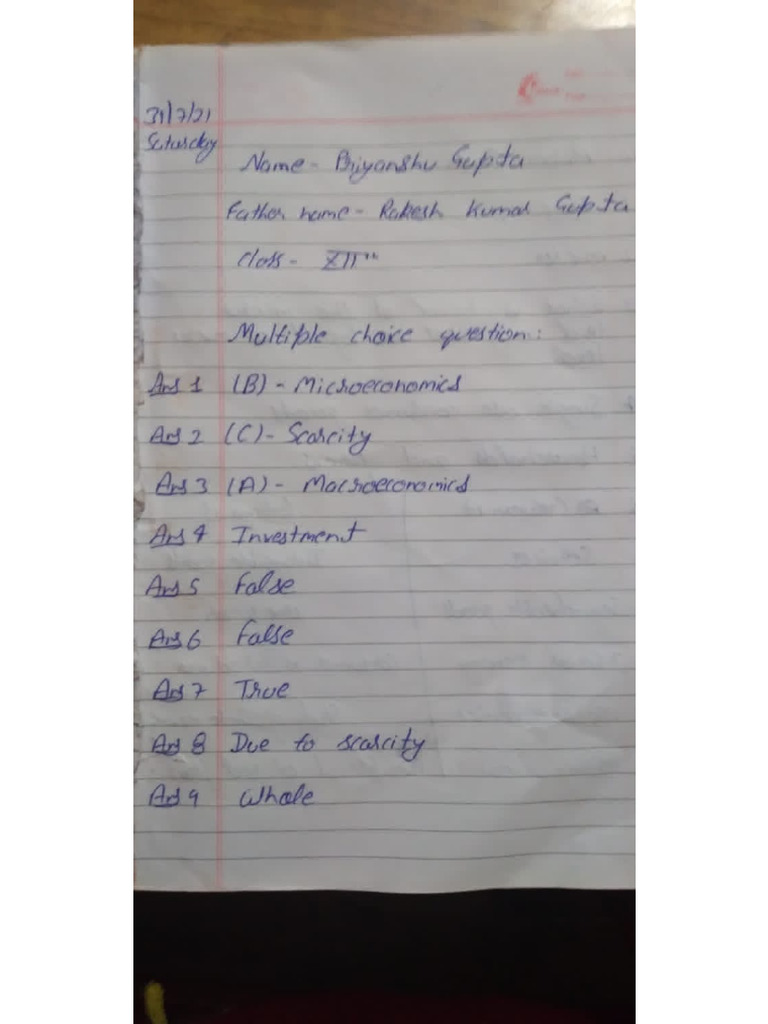 31/7/21
Saturday
Name - Priyanshu Gupta
Father name - Rakesh Kumar Gupta
Class - XIIth
Multiple choice question:
Ans 1 (B) - Microeconomics
Ans 2 (C) - Scarcity
Ans 3 (A) - Macroeconomics
Ans 4 Investment
Ans 5 False
Ans 6 False
Ans 7 True
Ans 8 Due to scarcity
Ans 9 Whole